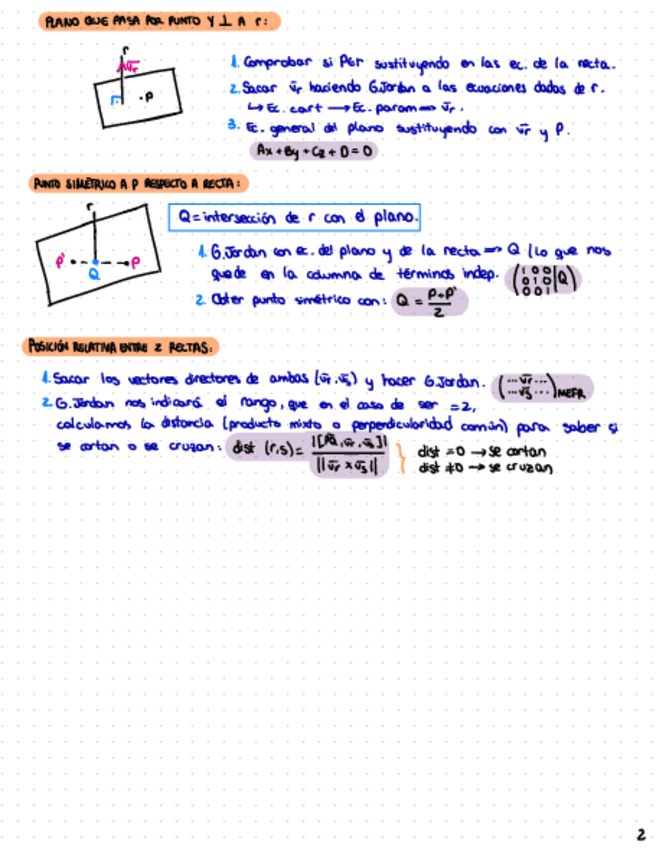 PLANO QUE PASA POR PUNTO Y ⊥ A r:
r
v̄r
r.
.P
1. Comprobar si P∈r sustituyendo en las ec. de la recta.
2. Sacar v̄r haciendo G.Jordan a las ecuaciones dadas de r.
↳ Ec. cart → Ec. param ⇒ v̄r.
3. Ec. general del plano sustituyendo con v̄r y P.
Ax + By + Cz + D = 0
PUNTO SIMÉTRICO A P RESPECTO A RECTA:
r
P'
Q
P
Q = intersección de r con el plano.
1. G.Jordan con ec. del plano y de la recta ⇒ Q (Lo que nos
quede en la columna de términos indep. (1 0 0 / 0 1 0 / 0 0 1 | Q)
2. Obter punto simétrico con: Q = P+P' / 2
POSICIÓN RELATIVA ENTRE 2 RECTAS:
1. Sacar los vectores directores de ambas (v̄r, v̄s) y hacer G.Jordan. (... v̄r ... / ... v̄s ...) MEFR
2. G. Jordan nos indicará el rango, que en el caso de ser =2,
calculamos la distancia (producto mixto o perpendicularidad común) para saber si
se cortan o se cruzan: dist (r,s) = |[PQ, v̄r, v̄s]| / ||v̄r × v̄s||
dist = 0 → se cortan
dist ≠ 0 → se cruzan
2